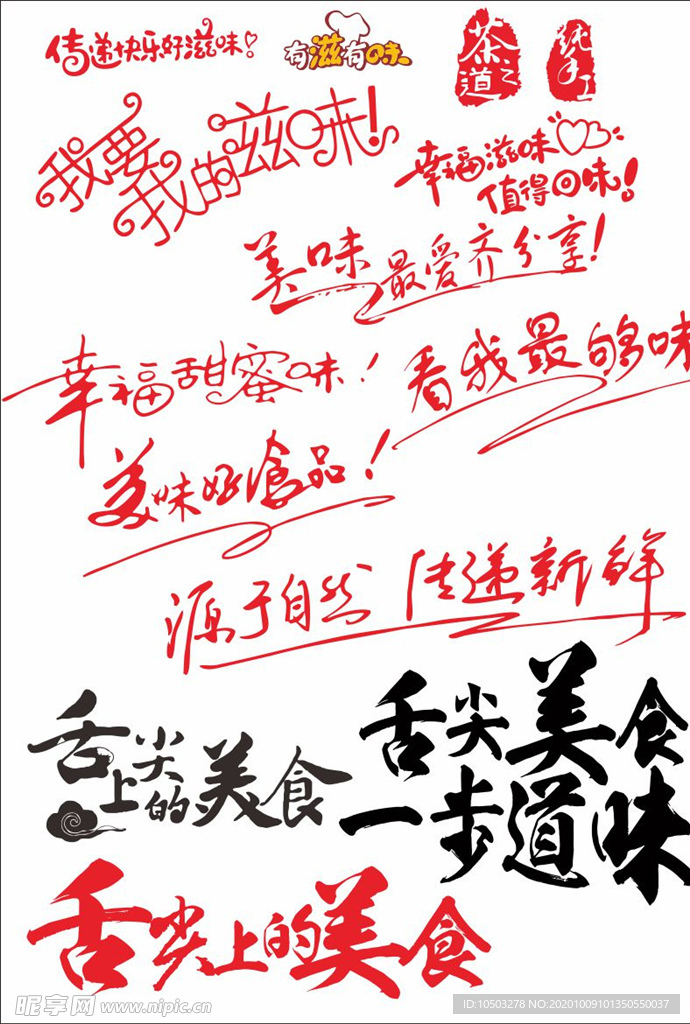 传递快乐好滋味!
有滋有味
茶之道
纯手工
我要
我的滋味!
幸福滋味
值得回味!
美味最爱齐分享!
幸福甜蜜味!
看我最够味
美味好食品!
源于自然 传递新鲜
舌尖上的美食
舌尖美食
一步道味
舌尖上的美食
昵享网 www.nipic.cn
ID:10503278 NO:20201009101350550037